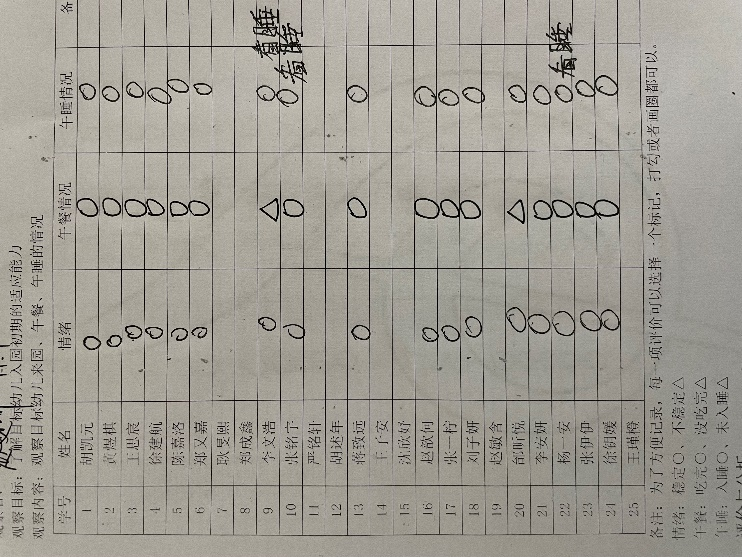 观察目标：了解目标幼儿入园初期的适应能力
观察内容：观察目标幼儿来园、午餐、午睡的情况
学号 姓名 情绪 午餐情况 午睡情况 备
1 胡凯元 ○ ○ ○
2 黄煜祺 ○ ○ ○
3 王思宸 ○ ○ ○
4 徐建航 ○ ○ ○
5 陈嘉洛 ○ ○ ○
6 郑又嘉 ○ ○ ○
7 耿旻熙
8 郑成鑫
9 李文浩 ○ △ ○ 看睡
10 张铭宇 ○ ○ ○ 看睡
11 严铭轩
12 胡述年
13 蒋致远 ○ ○ ○
14 王子安
15 沈欣妤
16 赵歆何 ○ ○ ○
17 张一柠 ○ ○ ○
18 刘子妍 ○ ○ ○
19 赵敏含
20 邰昕悦 ○ △ ○
21 李安妍 ○ ○ ○
22 杨一安 ○ ○ ○ 看睡
23 张伊伊 ○ ○ ○
24 徐俏媛 ○ ○ ○
25 王瑾橙
备注：为了方便记录，每一项评价可以选择一个标记，打勾或者画圈都可以。
情绪：稳定○、不稳定△
午餐：吃完○、没吃完△
午睡：入睡○、未入睡△